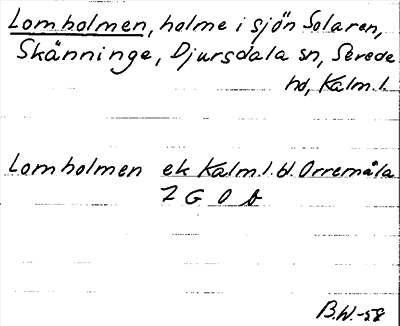 Lomholmen, holme i sjön Solaren,
Skänninge, Djursdala sn, Sevede
hd, Kalm. l.
Lomholmen ek Kalm. l. bl. Orremåla
7 G 0 b
B.W.-58